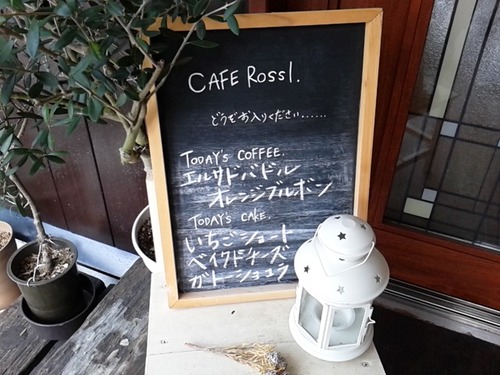 CAFE RossI.
どうぞお入りください......
TODAY's COFFEE.
エルサルバドル
オレンジブルボン
TODAY's CAKE.
いちごショート
ベイクドチーズ
ガトーショコラ